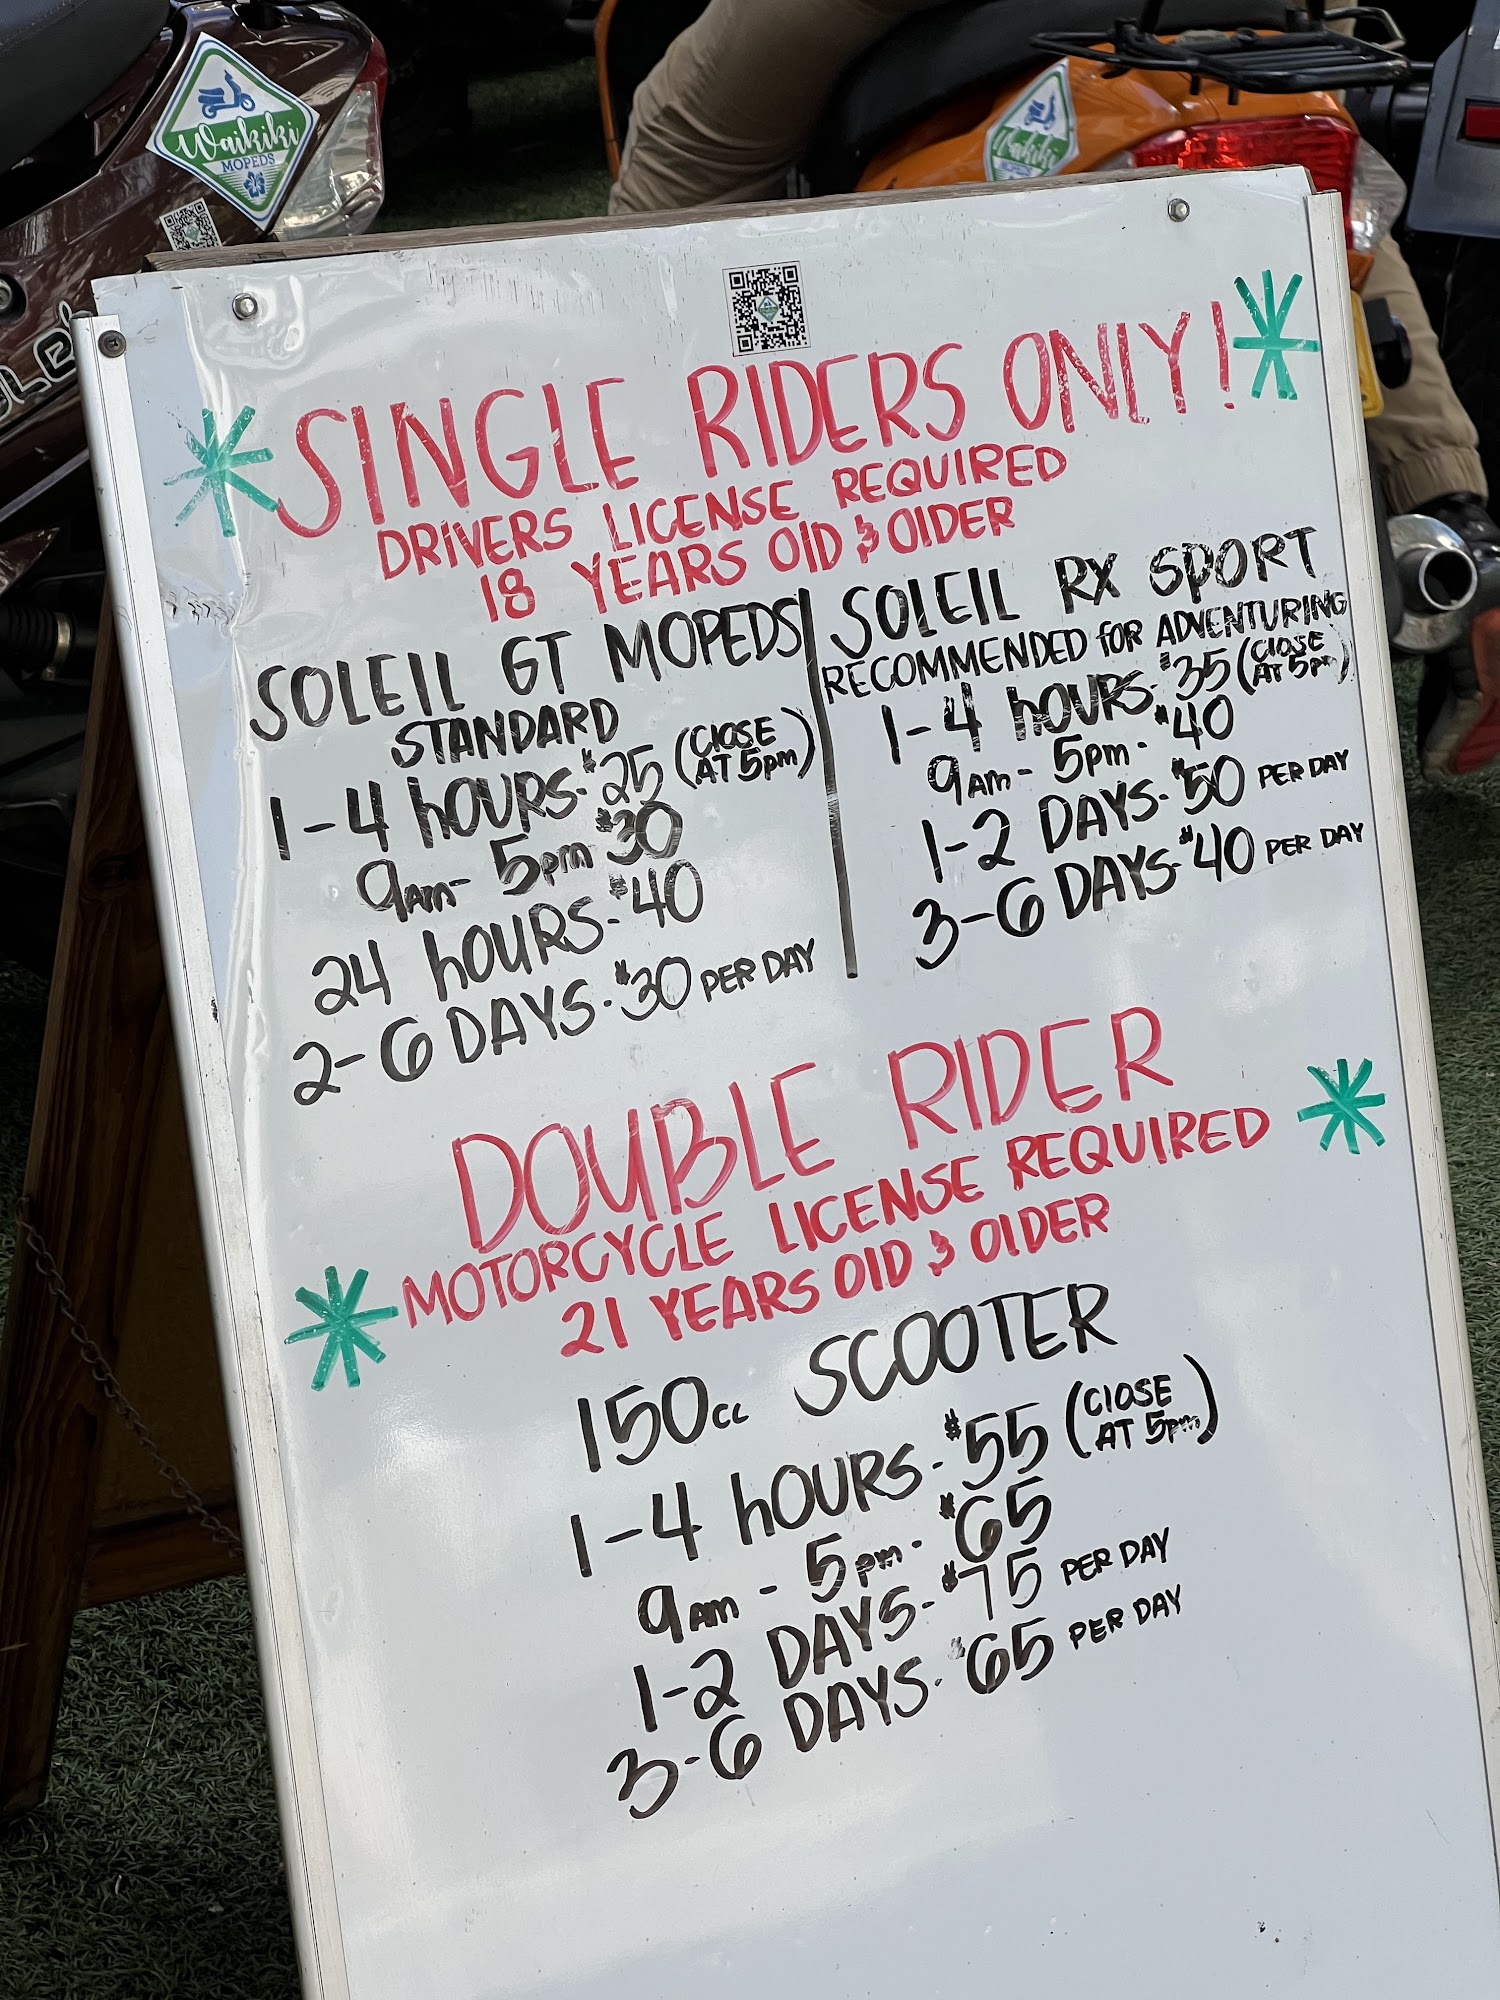 Waikiki
MOPEDS
Waikiki
MOPEDS
SINGLE RIDERS ONLY!
DRIVERS LICENSE REQUIRED
18 YEARS OLD & OLDER
SOLEIL GT MOPEDS
STANDARD
1-4 hOURS-$25 (CLOSE AT 5pm)
9AM- 5pm $30
24 hOURS-$40
2-6 DAYS-$30 PER DAY
SOLEIL RX SPORT
RECOMMENDED fOR ADVENTURING
1-4 hOURS-$35 (CLOSE AT 5pm)
9AM- 5pm-$40
1-2 DAYS-$50 PER DAY
3-6 DAYS-$40 PER DAY
DOUBLE RIDER
MOTORCYCLE LICENSE REQUIRED
21 YEARS OLD & OLDER
150cc SCOOTER
1-4 hOURS-$55 (CLOSE AT 5pm)
9AM - 5pm-$65
1-2 DAYS-$75 PER DAY
3-6 DAYS-$65 PER DAY